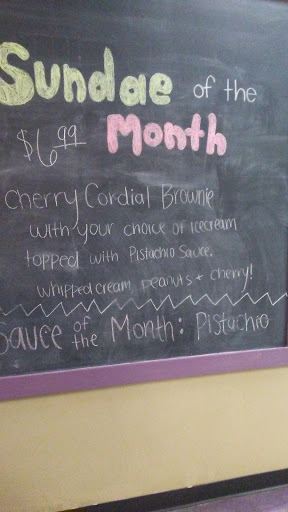 Sundae of the
$6.99 Month
Cherry Cordial Brownie
with your choice of icecream
topped with Pistachio Sauce.
whipped cream, peanuts + cherry!
Sauce of the Month: Pistachio